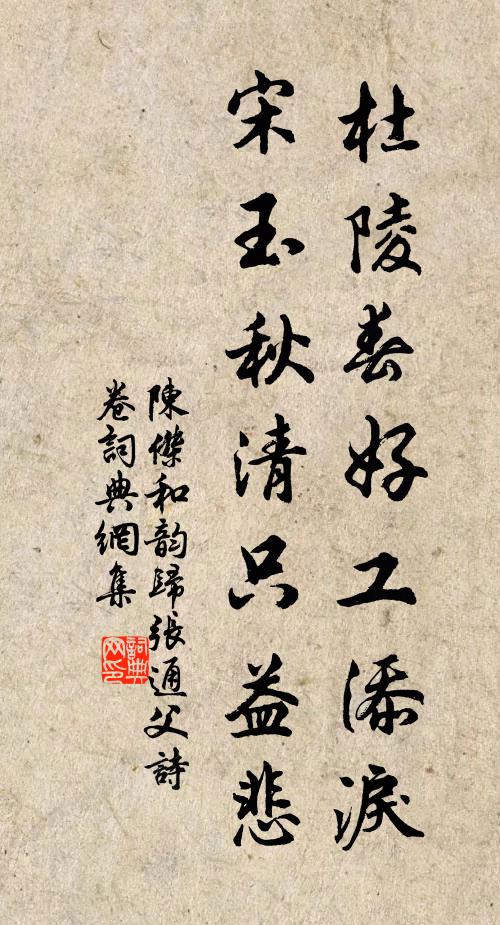 杜陵春好工添淚
宋玉秋清只益悲
陳傑和韵歸張通父詩
卷詞典網集
詞典網印